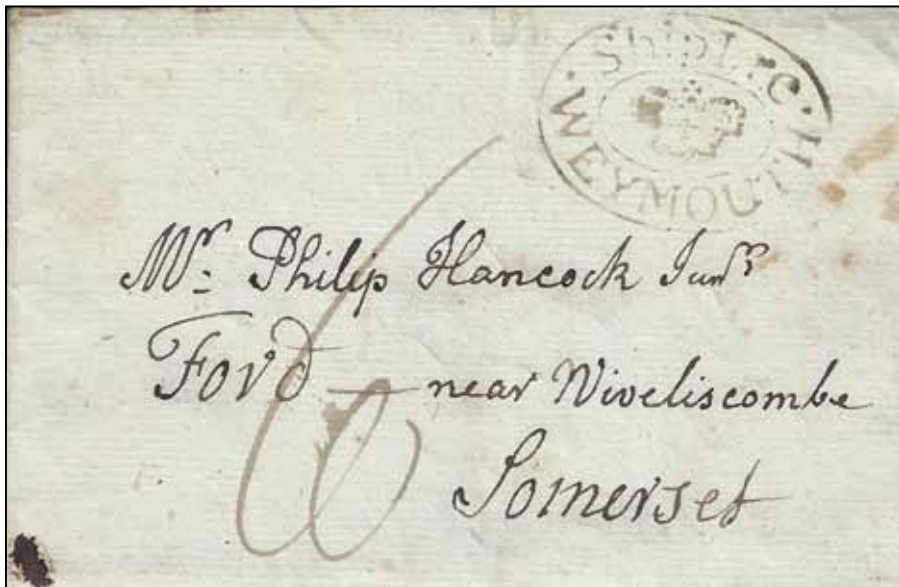 Ship Lre
WEYMOUTH
6
Mr. Philip Hancock Junr
Ford — near Wiveliscombe
Somerset